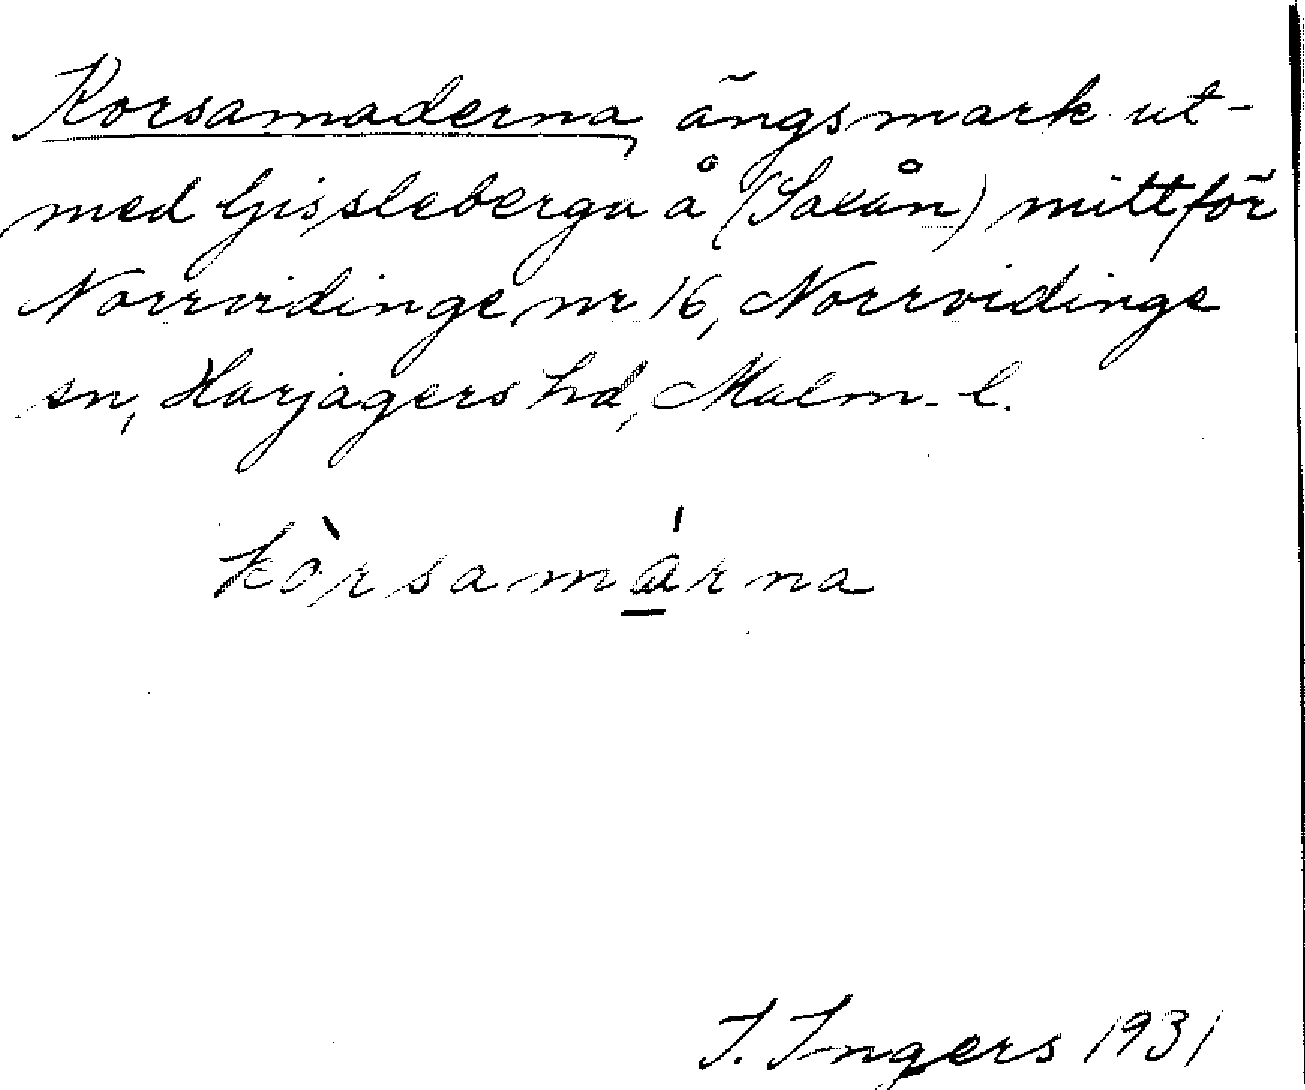 Korsamaderna, ängsmark ut-
med Gissleberga å (Saxån) mittför
Norrvidinge nr 16, Norrvidinge
sn, Harjagers hd, Malm. l.
kòrsamárna
I. Ingers 1931